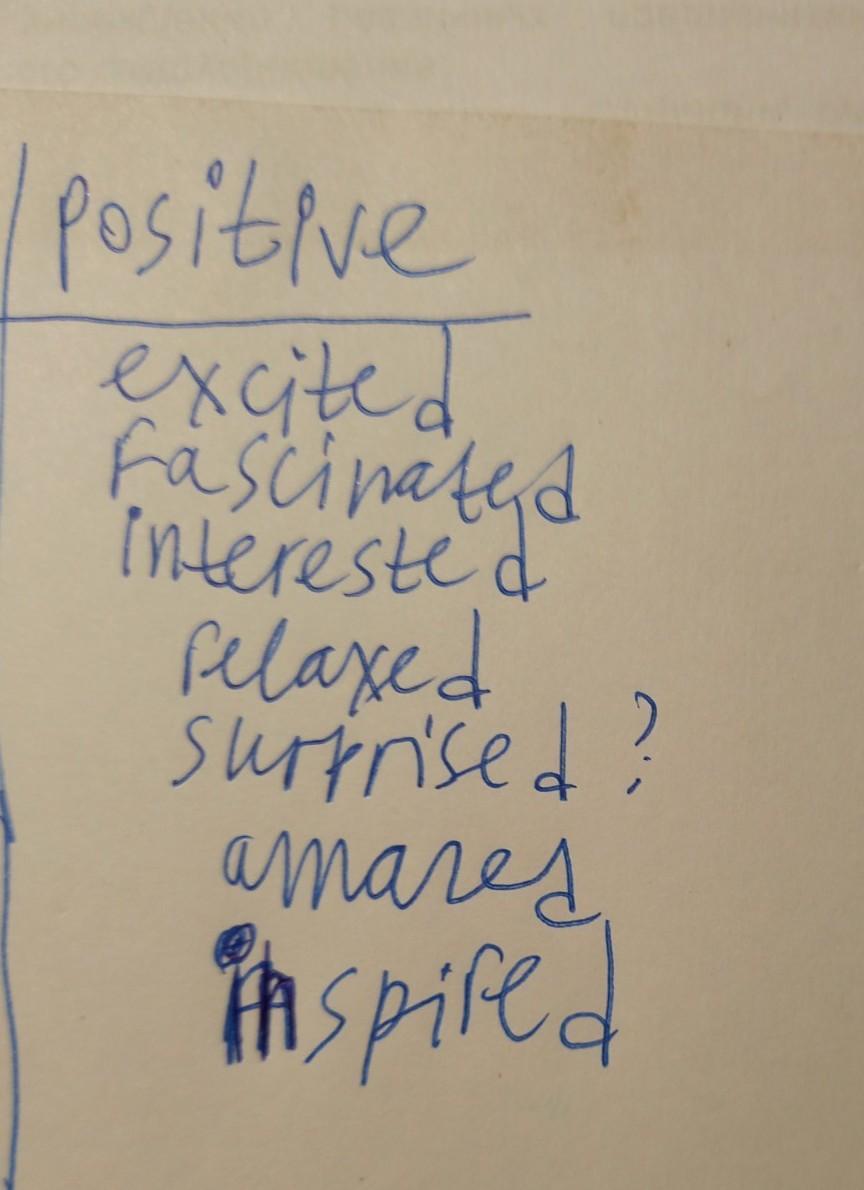 positive
excited
Fascinated
interested
relaxed
surprised ?
amazed
inspired